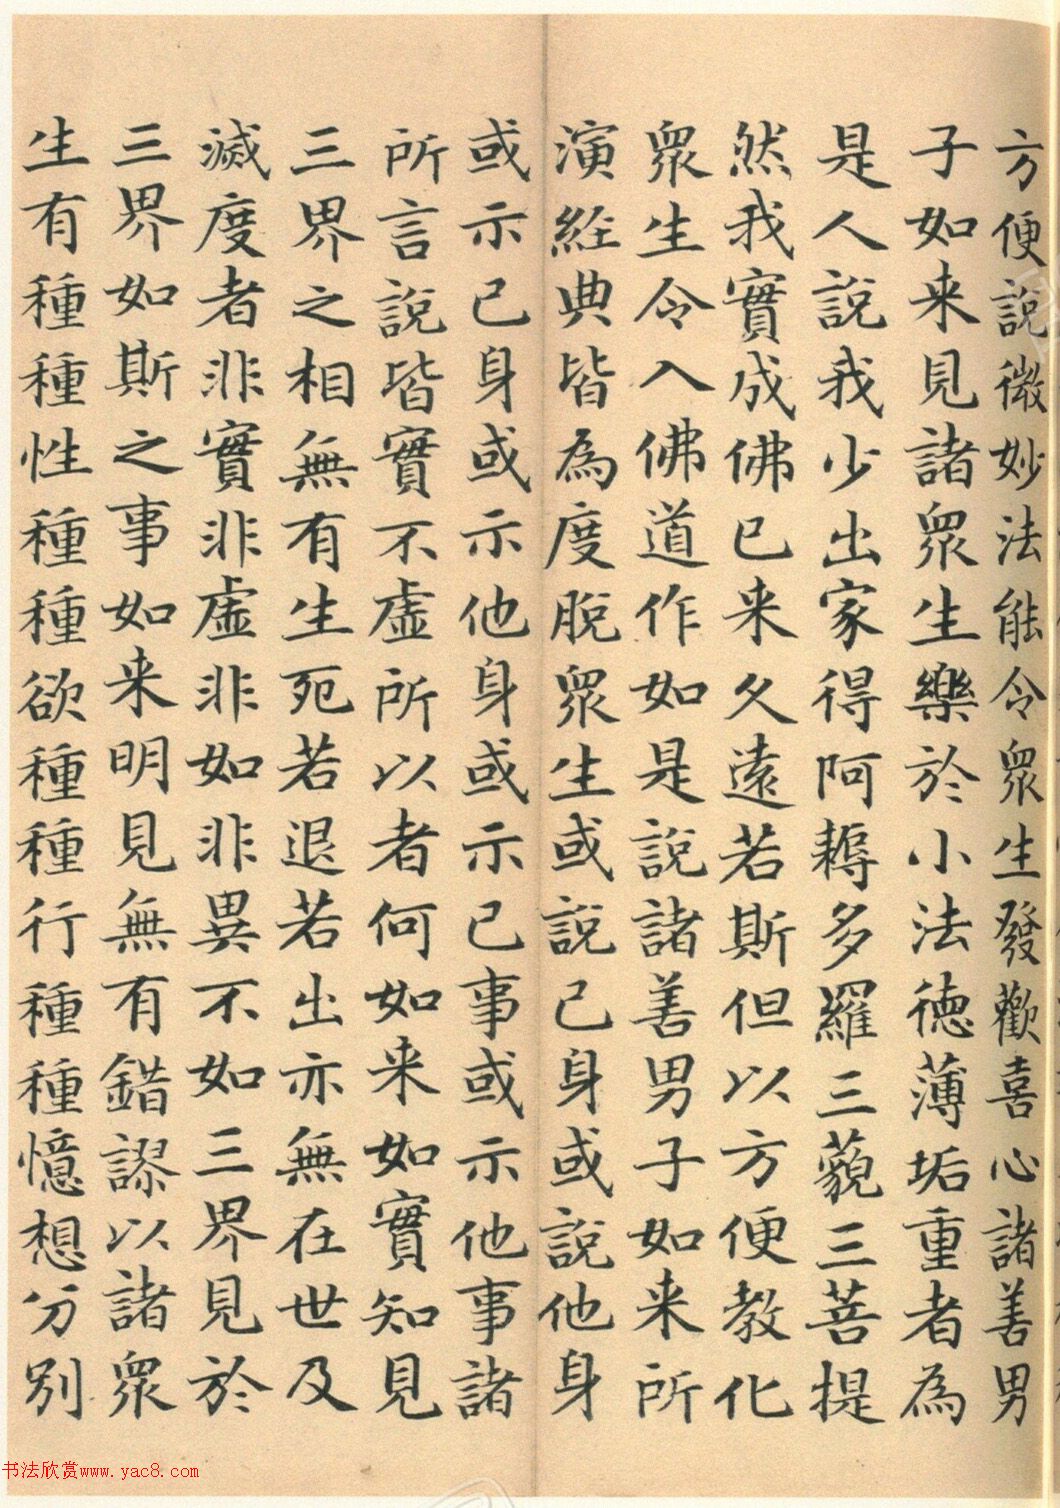 方便說微妙法能令眾生發歡喜心諸善男
子如来見諸眾生樂於小法德薄垢重者為
是人說我少出家得阿耨多羅三藐三菩提
然我實成佛已来久遠若斯但以方便教化
眾生令入佛道作如是說諸善男子如来所
演經典皆為度脫眾生或說己身或說他身
或示己身或示他身或示己事或示他事諸
所言說皆實不虛所以者何如来如實知見
三界之相無有生死若退若出亦無在世及
滅度者非實非虛非如非異不如三界見於
三界如斯之事如来明見無有錯謬以諸眾
生有種種性種種欲種種行種種憶想分別
书法欣赏www.yac8.com